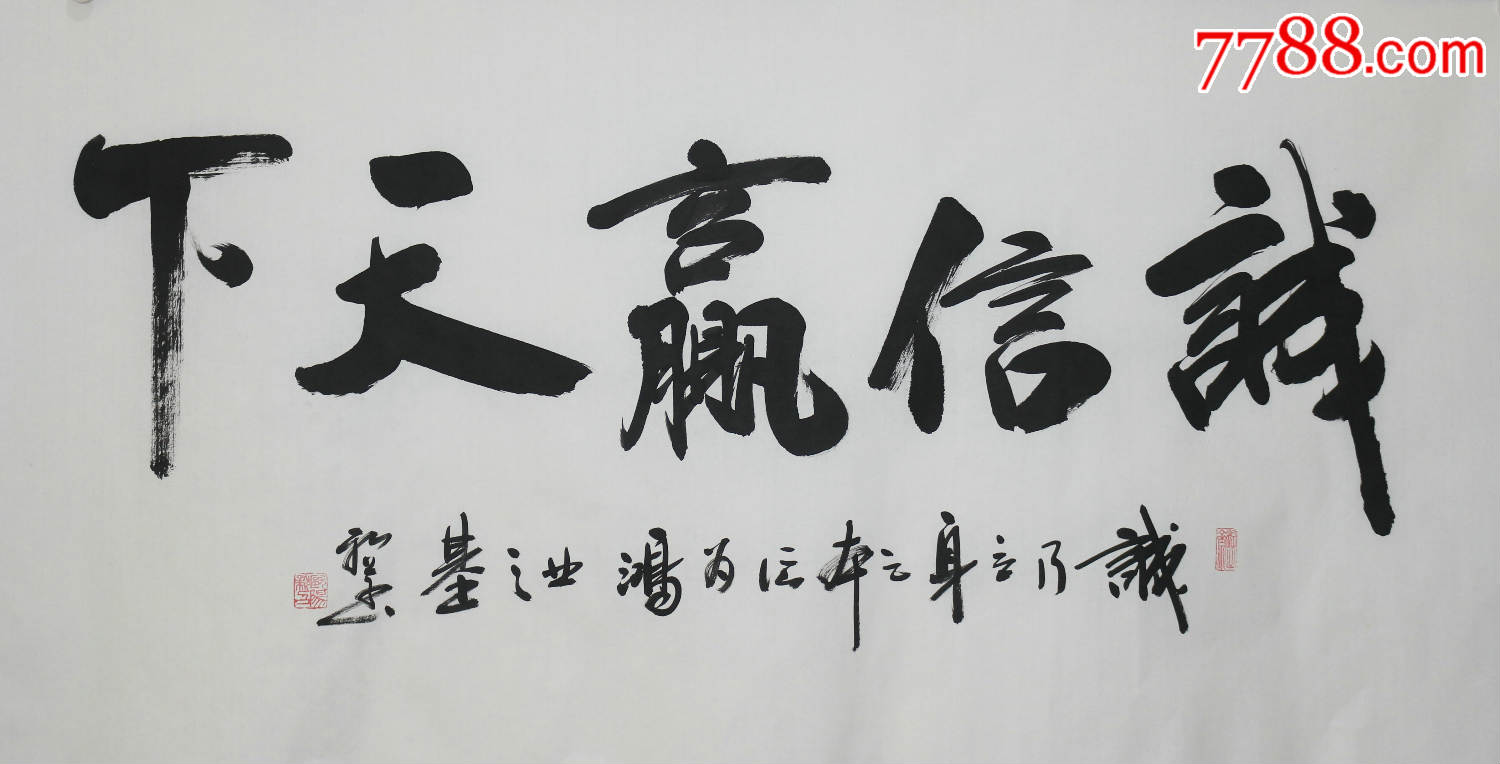 7788.com
誠信贏天下
誠乃立身之本信为鴻业之基